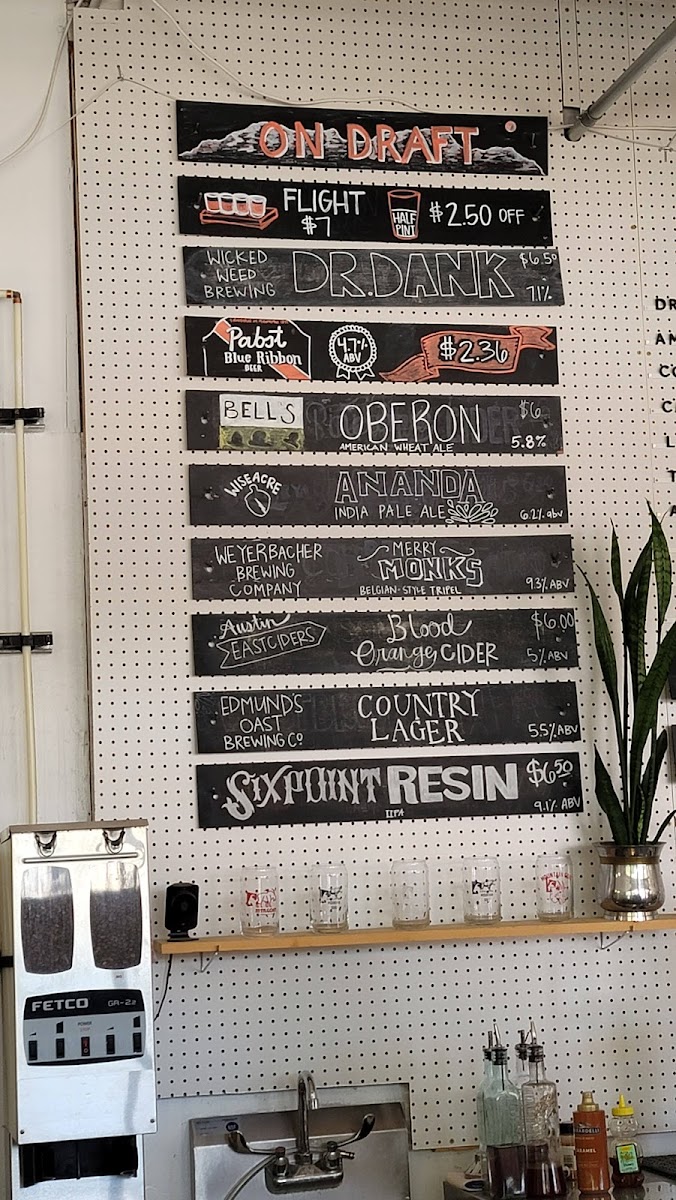 ON DRAFT
FLIGHT
$7
HALF
PINT
$2.50 OFF
WICKED
WEED
BREWING
DR. DANK
$6.50
7.1%
Pabst
Blue Ribbon
BEER
4.7%
ABV
$2.36
BELL'S
OBERON
AMERICAN WHEAT ALE
$6
5.8%
WISEACRE
ANANDA
INDIA PALE ALE
6.2% abv
WEYERBACHER
BREWING
COMPANY
MERRY
MONKS
BELGIAN-STYLE TRIPEL
9.3% ABV
Austin
EASTCIDERS
Blood
Orange CIDER
$6.00
5% ABV
EDMUND'S
OAST
BREWING CO
COUNTRY
LAGER
5.5% ABV
SIXPOINT RESIN
IIPA
$6.50
9.1% ABV
DR
AM
CO
C
L
T
A
FETCO GR-2.2
POWER
CARAMEL